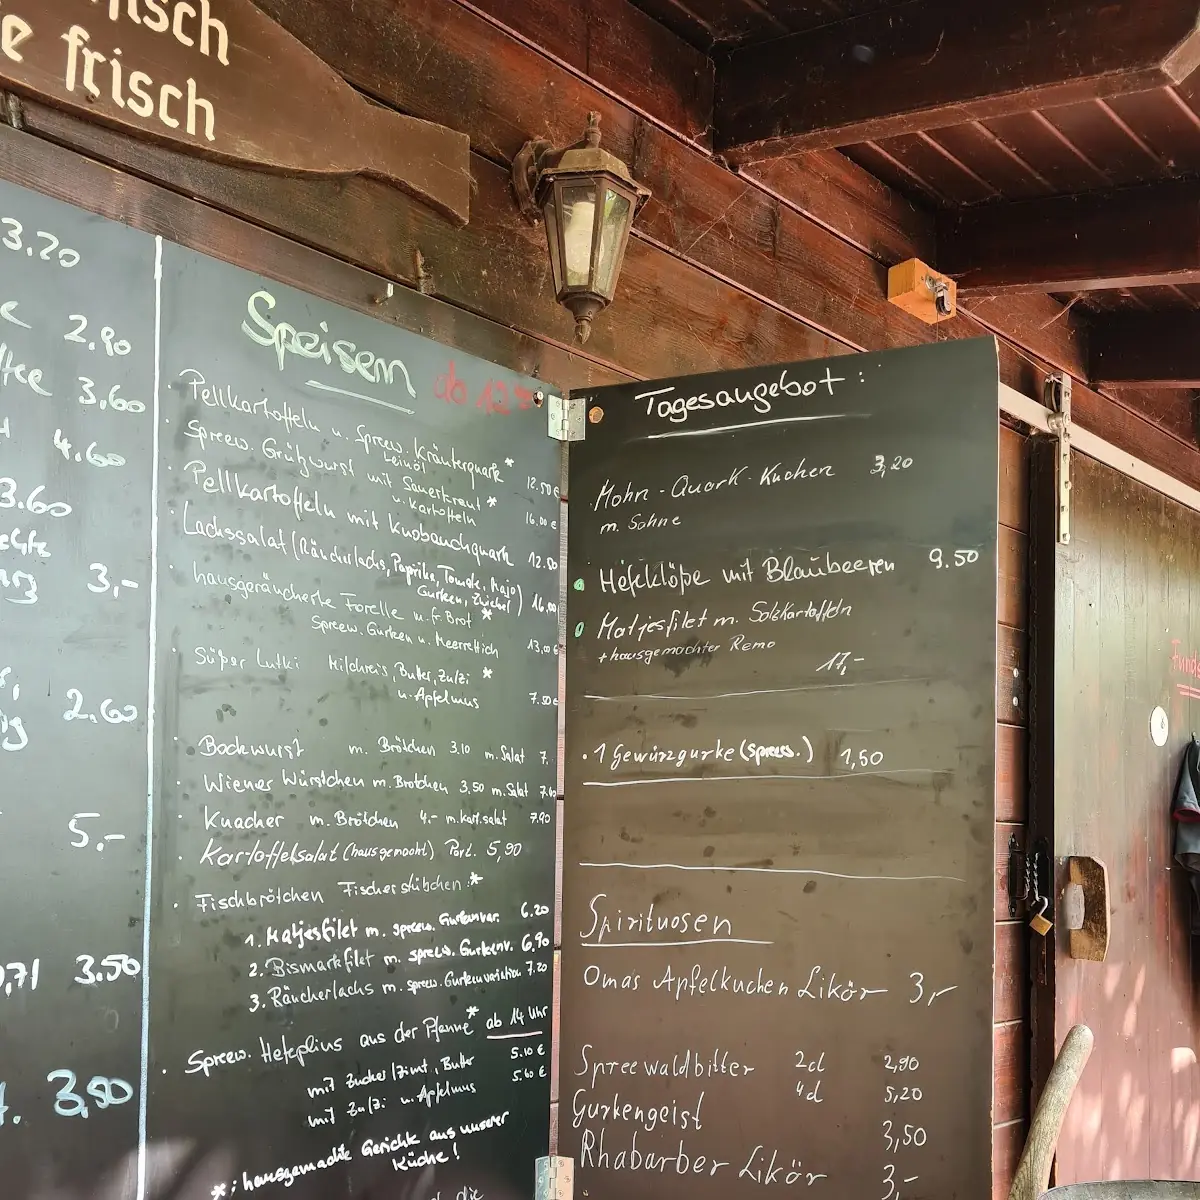 isch
e frisch
3.20
e 2.90
ffee 3,60
4.60
3.60
3,-
2.60
5.-
0,7l 3.50
3,50
Speisen ab 12
Pellkartoffeln u. Spreew. Kräuterquark *
Leinöl 12.50€
Spreew. Grützwurst mit Sauerkraut *
u. Kartoffeln 16.00€
Pellkartoffeln mit Knobauchquark 12.00
Lachssalat (Räucherlachs, Paprika, Tomate, Majo
Gurken, Zwiebel) 16.00
hausgeräucherte Forelle m.fr. Brot *
Spreew. Gurken u. Meerrettich 13,00€
Süßer Lutki Milchreis, Butter, Zu/Zi *
u. Apfelmus 7.50€
Bockwurst m. Brötchen 3.10 m. Salat 7.
Wiener Würstchen m. Brötchen 3,50 m. Salat
Knacker m. Brötchen 4.- m. kart.salat 7.90
Kartoffelsalat (hausgemacht) Port. 5,90
Fischbrötchen Fischerstübchen: *
1. Matjesfilet m. spreew. Gurkenvar. 6.20
2. Bismarkfilet m. spreew. Gurkenv. 6,90
3. Räucherlachs m. spreew. Gurkenvariation 7.20
Spreew. Hefeplins aus der Pfanne * ab 14 Uhr
mit Zucker/Zimt, Butter 5.10 €
mit Zu/Zi u. Apfelmus 5.60 €
*: hausgemachte Gerichte aus unserer
Küche!
die
Tagesangebot:
Mohn-Quark-Kuchen 3,20
m. Sahne
Hefeklöße mit Blaubeeren 9.50
Matjesfilet m. Salzkartoffeln
+ hausgemachter Remo
17,-
1 Gewürzgurke (spreew.) 1,50
Spirituosen
Omas Apfelkuchen Likör 3,-
Spreewaldbitter 2cl 2,90
4cl 5,20
Gurkengeist 3,50
Rhabarber Likör 3,-
Fund